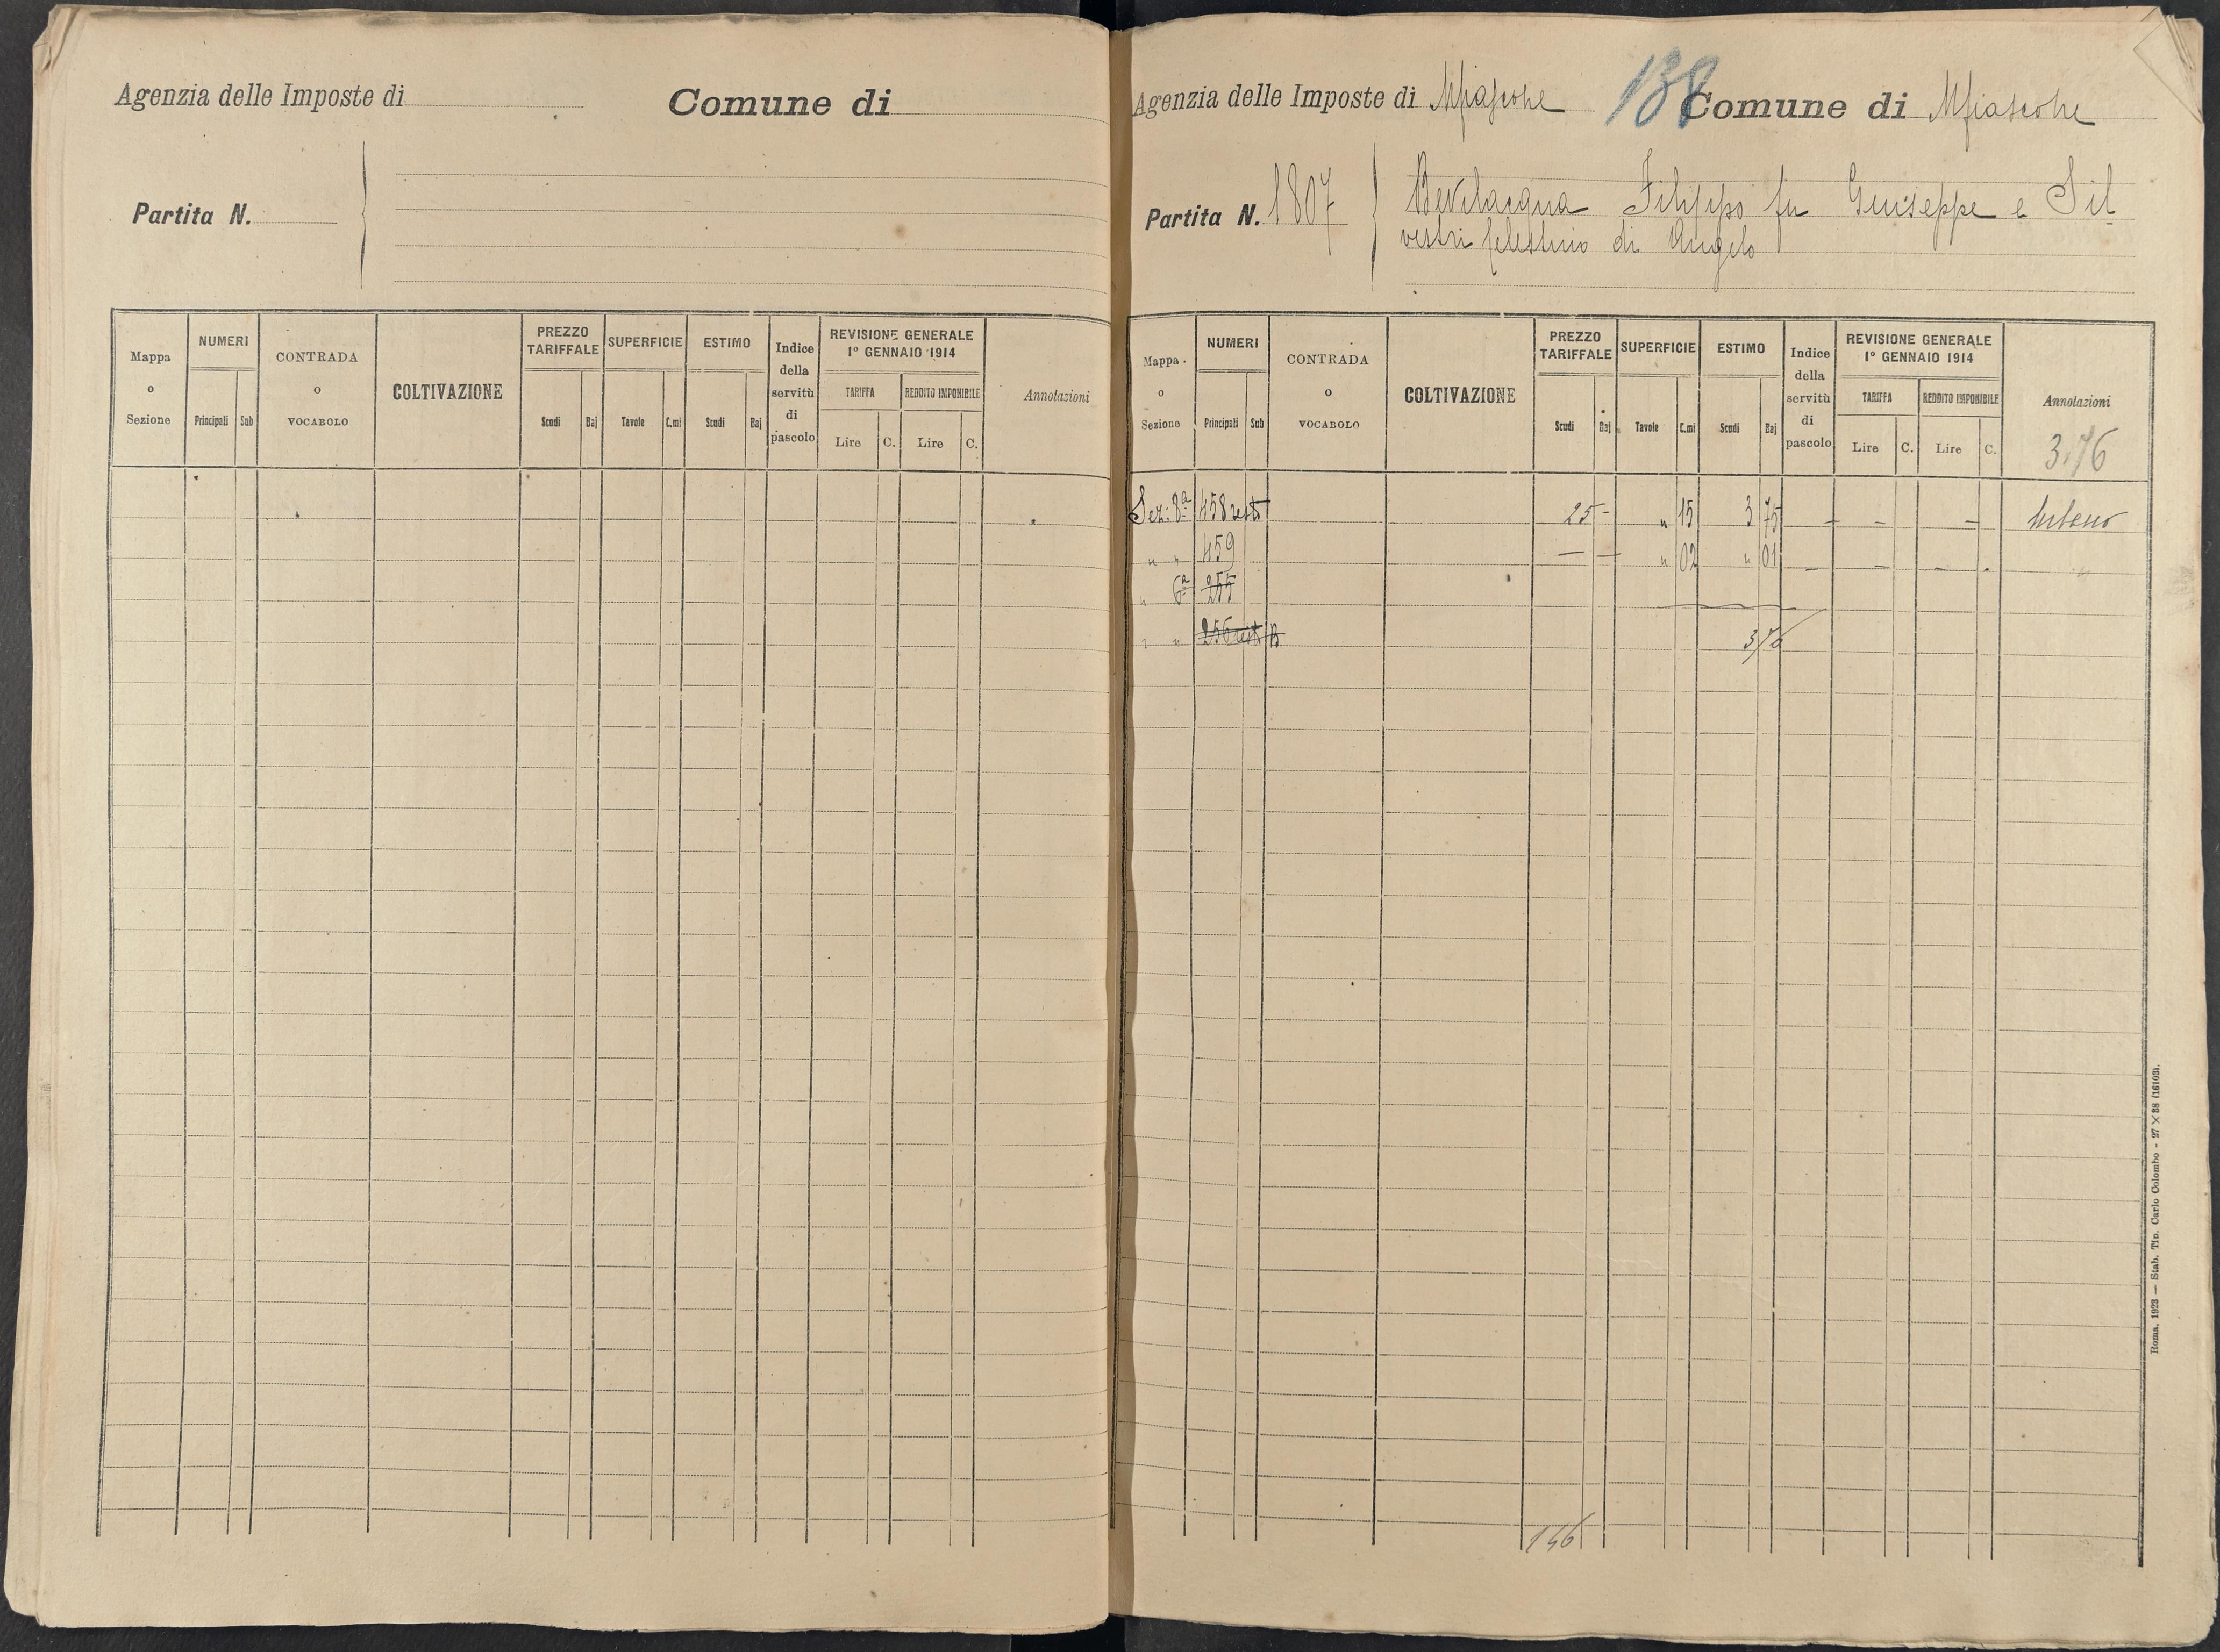 Agenzia delle Imposte di
Comune di
Partita N.
Mappa o Sezione
NUMERI
Principali Sub
CONTRADA o VOCABOLO
COLTIVAZIONE
PREZZO TARIFFALE
Scudi Baj
SUPERFICIE
Tavole C.mi
ESTIMO
Scudi Baj
Indice della servitù di pascolo
REVISIONE GENERALE
1° GENNAIO 1914
TARIFFA
Lire C.
REDDITO IMPONIBILE
Lire C.
Annotazioni
138
Agenzia delle Imposte di
Comune di
Partita N. 1807
Bevilacqua Filippo fu Giuseppe e Sil
vestri Celestino di Angelo
Mappa o Sezione
NUMERI
Principali Sub
CONTRADA o VOCABOLO
COLTIVAZIONE
PREZZO TARIFFALE
Scudi Baj
SUPERFICIE
Tavole C.mi
ESTIMO
Scudi Baj
Indice della servitù di pascolo
REVISIONE GENERALE
1° GENNAIO 1914
TARIFFA
Lire C.
REDDITO IMPONIBILE
Lire C.
Annotazioni
3.76
Sez: 8ª 458 resto 25 - " 15 3 75 - - -
" " 459 - - " 02 " 01 - - - -
" 6ª 255
" " 256 resto B
3 76
146
Roma, 1923 — Stab. Tip. Carlo Colombo - 27 × 38 (16103).